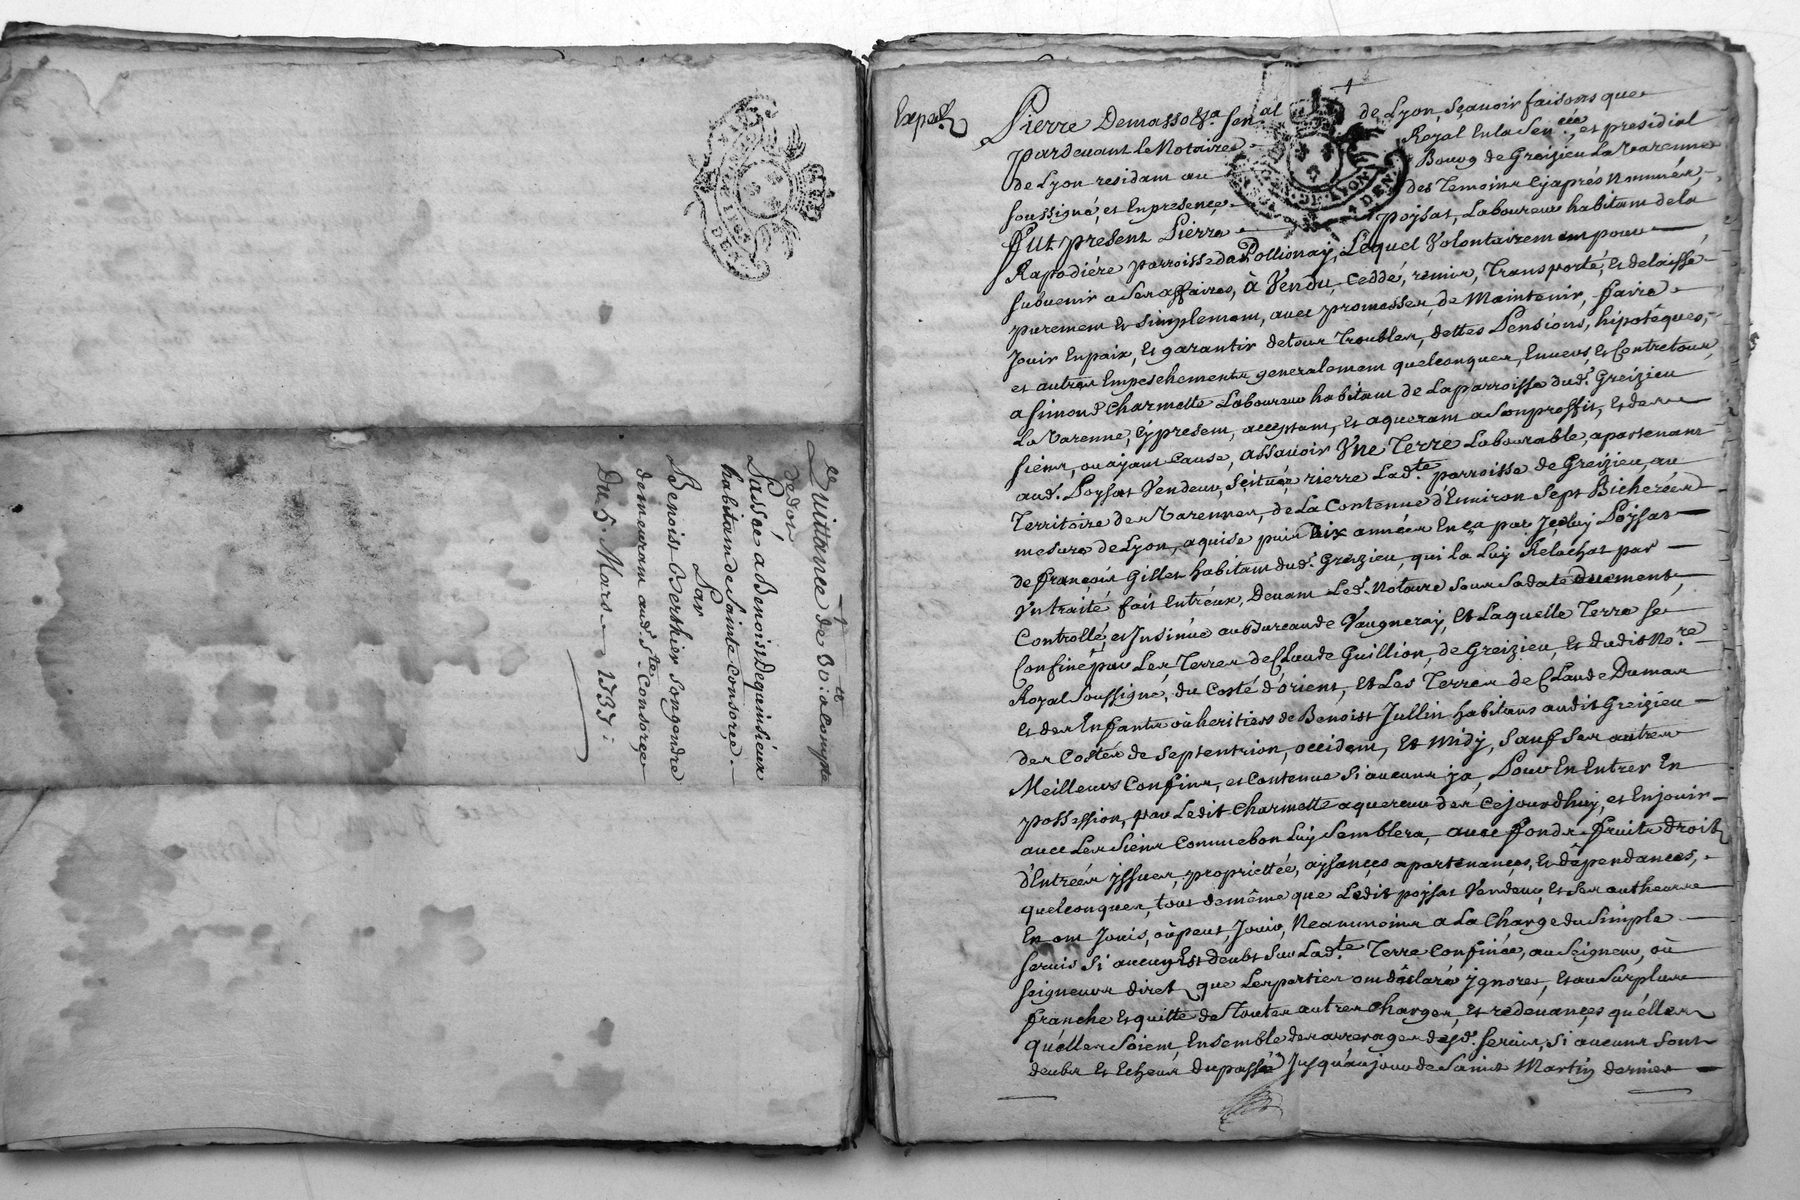 Quittance de 80:ᵗᵗ acompte
de dot
Passée a Benoist dequinsieux
habitant de Sainte Consorçe.
Par
Benoist Berthier son gendre
demeurant aud. Ste Consorçe
Du 5 Mars 1735.
Expedié
Pierre Demasso sen.al de Lyon, Sçauoir faisons que
pardeuant le Notaire Royal En la Sen.cée, et presidial
de Lyon residant au Bourg de Greizieu La Varenne
soussigné, et En presence des Temoins Cy aprés Nommés,
Fut present Pierre poÿsat, Laboureur habitant de la
Rapodiére parroisse de Pollionaÿ, Lequel Volontairement pour
subuenir a Ses affaires, à Vendu, Ceddé, remis, Transporté, et delaissé
purement et Simplement, auec promesses, de Maintenir, faire
Jouir En paix, et garantir de tous Troubles, dettes Pensions, hipotêques,
et autres Empeschements generalement quelconques, Enuers, et Contre tous,
a Simond Charmette Laboureur habitant de La parroisse dud. Greizieu
La Varenne, Cÿ present, acceptant, et aquerant a Son proffit, et des
siens, ou aÿant Cause, assauoir Vne Terre Labourable, apartenant
aud. Poÿsat Vendeur, Scituée rierre Lad.te parroisse de Greizieu, au
Territoire des Varennes, de La Contenue d'Enuiron Sept Bicherées
mesure de Lyon, aquise puis Dix années En ça par Jceluy Poÿsat
de françois Gillet habitant dud. Greizieu, qui la Luÿ Relachat par
Vn traité fait Entr'eux, Deuant Led. Notaire Sous Sa date Duement
Controllé, et Jnsinué au Bureau de Vaugneray, Et Laquelle Terre se
Confine par Les Terres de Claude Guillion, de Greizieu, et dudit No.re
Royal Soussigné, du Costé d'orient, et Les Terres de Claude Dumas
et des Enfants où heritiers de Benoist Jullin habitans audit Greizieu
des Costés de Septentrion, occident, Et Midÿ, Sauf Ses autres
Meilleurs Confins, et Contenue Si aucuns ÿ a, Pour En Entrer En
possession, par Ledit Charmette aquereur dés Cejourdhuÿ, et En jouir
auec Les Siens Comme bon Luÿ Semblera, auec fonds fruits droits
d'Entrées ÿssues, propriettée, aÿsances apartenances, et dêpendances,
quelconques, tout de mème que Ledit poÿsat Vendeur, et Ses autheurs
En ont Jouis, où peut, Jouir, Neanmoins a La Charge du Simple
seruis Si aucun Est deubt Sur Lad.te Terre Confinée, au Seigneur, où
seigneurs diret que Les parties ont dêclaré ÿgnorer, et au Surplus
franche et quitte de Toutes autres Charges, et redeuances qu'elles
qu'elles Soient, Ensemble des arrerages desd. seruis, Si aucuns sont
deubs et Echeus du passé Jusqu'au jour de Saint Martin dernier